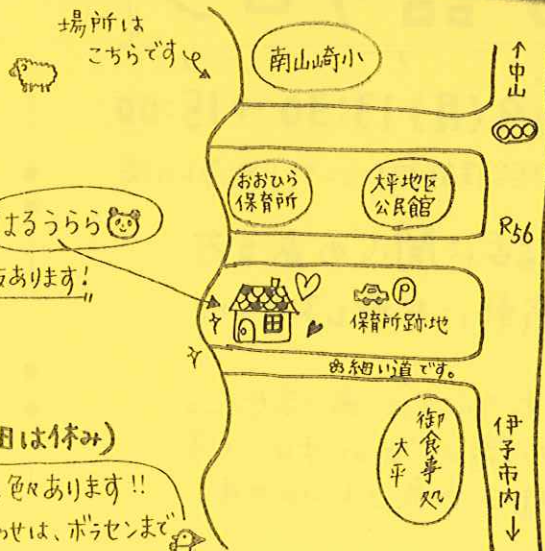 場所は
こちらです
南山崎小
↑中山
おおひら
保育所
大平地区
公民館
R56
はるうらら
あります!
P
保育所跡地
細い道です。
御食事処
大平
伊予市内↓
は休み)
色々あります!!
わせは、ボラセンまで